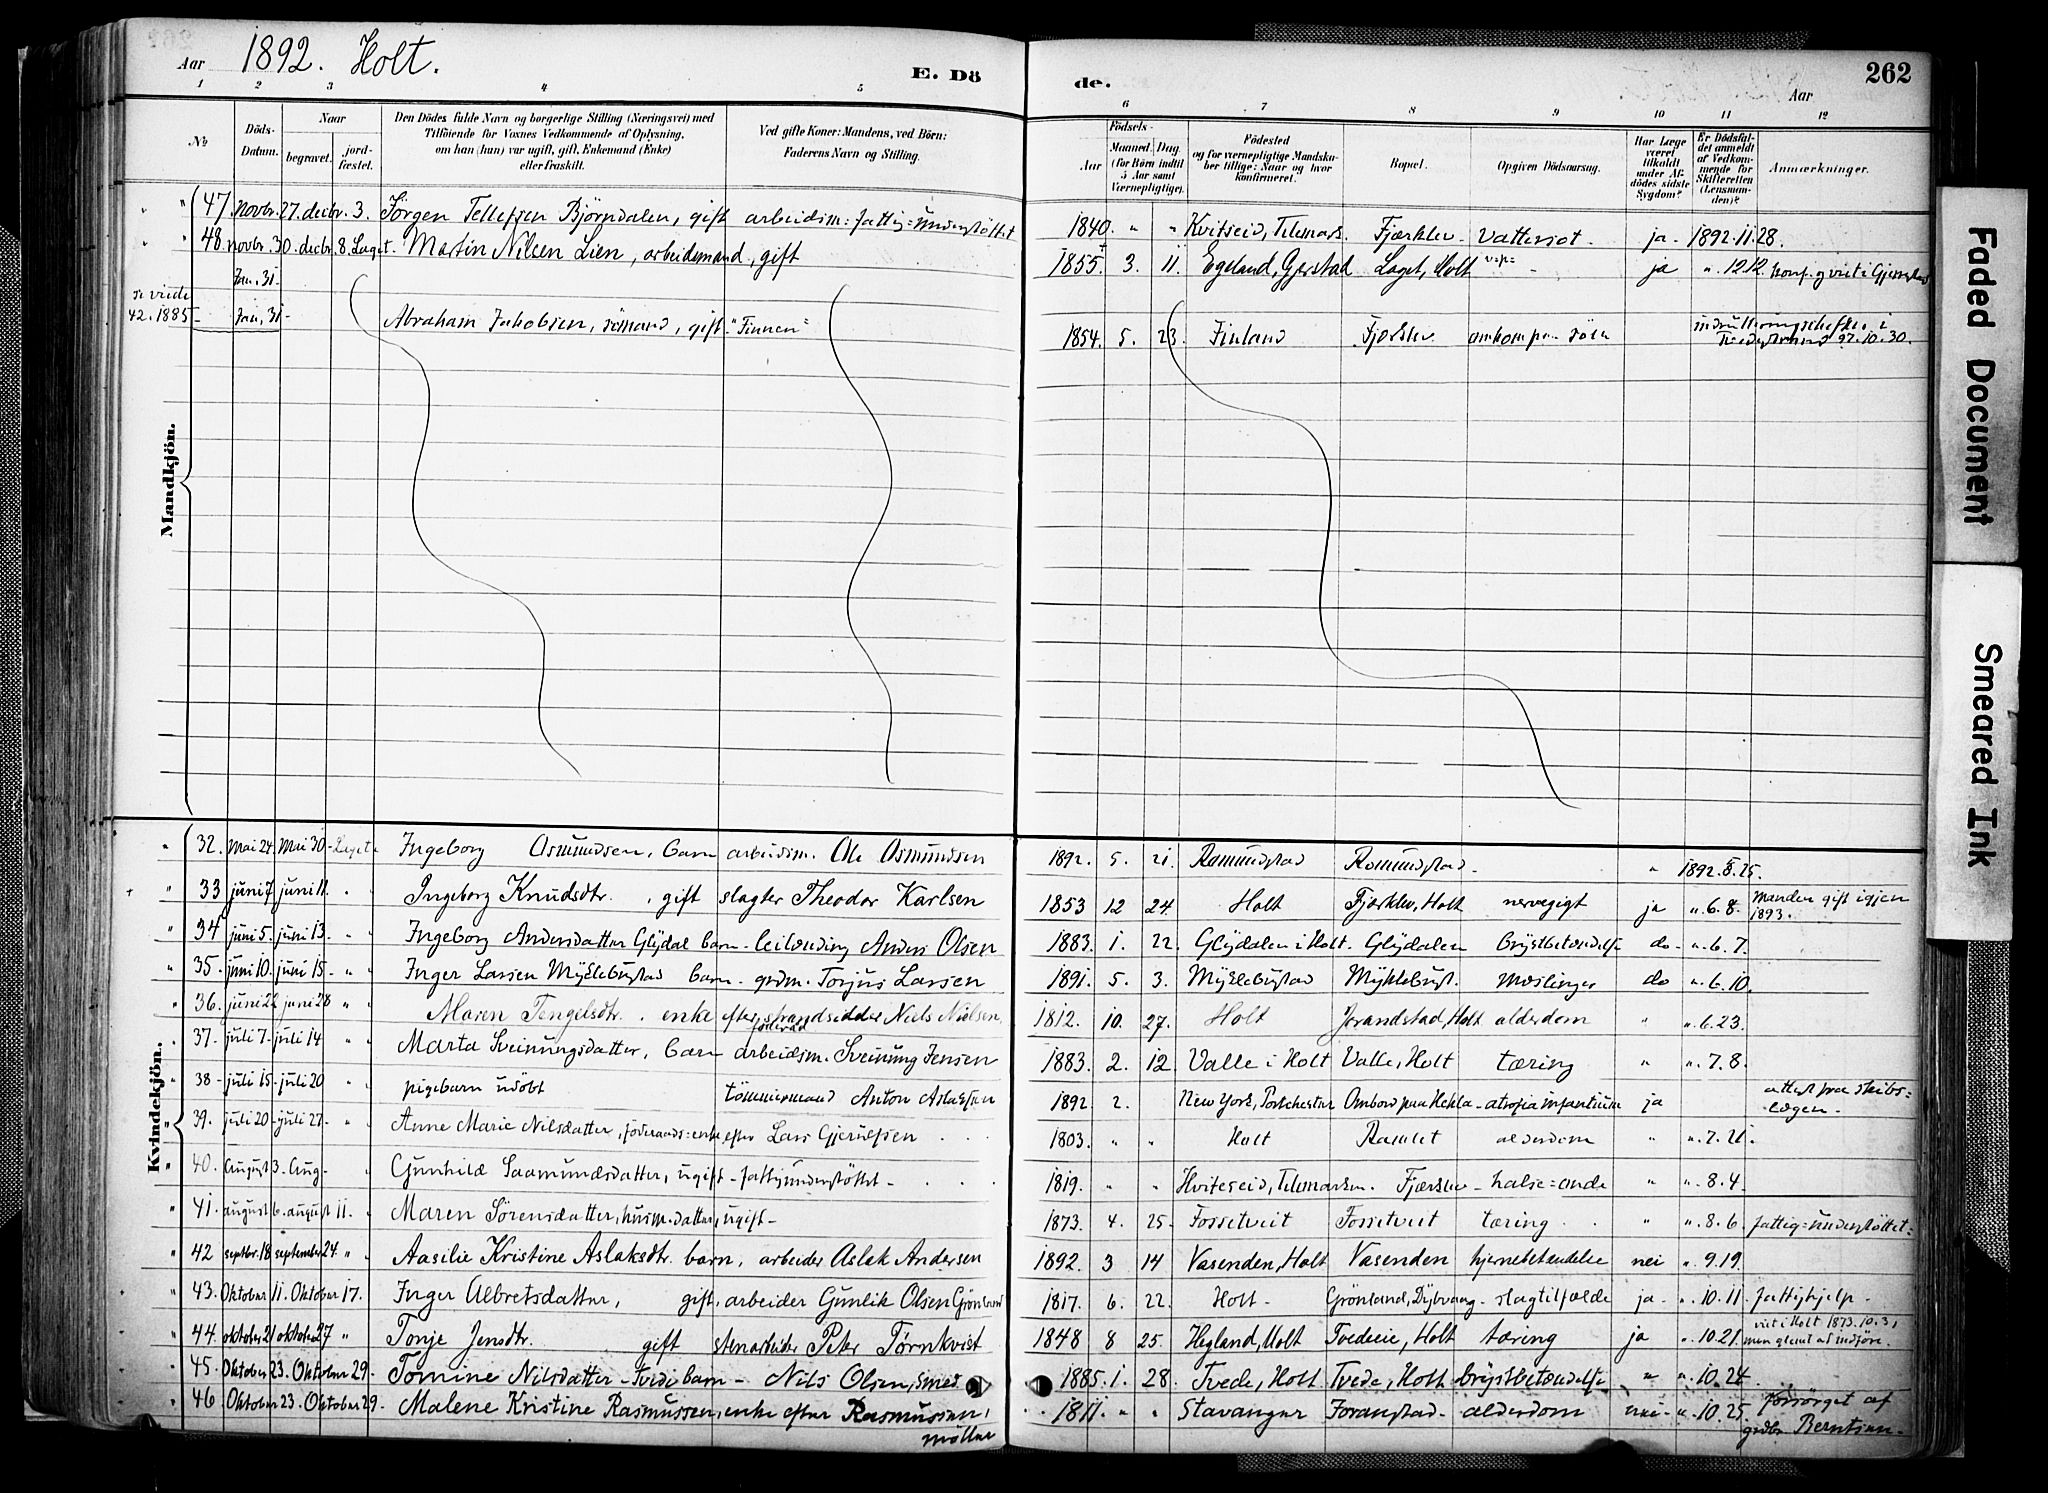 Aar 1892. Holt. E. Dö de. Aar 262
1 2 3 4 5 6 7 8 9 10 11 12
No
Döds-Datum.
Naar begravet. jord-fæstet.
Den Dödes fulde Navn og borgerlige Stilling (Næringsvei) med Tilföiende for Voxnes Vedkommende af Oplysning, om han (hun) var ugift, gift, Enkemand (Enke) eller fraskilt.
Ved gifte Koner: Mandens, ved Börn: Faderens Navn og Stilling.
Födsels-
Aar Maaned. Dag (for Börn indtil 5 Aar samt Værnepligtige).
Födested og for værnepligtige Mandskaber tillige: Naar og hvor konfirmeret.
Bopæl.
Opgiven Dödsaarsag.
Har Læge været tilkaldt under Afdödes sidste Sygdom?
Er Dödsfaldet anmeldt af Vedkommende for Skifteretten (Lensmanden)?
Anmærkninger.
Mandkjön.
" " 47 Novbr. 27. decbr. 3. Jörgen Tellefsen Björndalen, gift arbeidsm: fattig=understöttet 1840. " " Kvitseid, Telemark. Fjærklev Vattersot. ja 1892.11.28.
" " 48 novbr. 30. decbr. 8. Laget. Martin Nilsen Lien, arbeidsmand, gift 1855 3. 11. Egeland, Gjerstad Laget, Holt ja ". 12.12. konf. g viet i Gjerrestad
Jan. 31
se vide
42. 1885 Jan. 31 Abraham Jakobsen, sömand, gift "Finnen" 1854. 5. 23. Finland Fjærklev omkom paa söen 92.10.30.
Kvindekjön.
" 32. Mai 24. Mai 30 Laget Ingeborg Osmundsen, barn arbeidsm. Ole Osmundsen 1892. 5. 21. Romundstad Romundstad " 1892.5.25.
+ " 33 juni 7. juni 11. " Ingeborg Knudsdtr. , gift slagter Theodor Karlsen 1853 12 24. Holt Fjærklev, Holt nervegigt ja ". 6.8. Manden gift igjen 1893.
" 34 juni 5. juni 13. " Ingeborg Andersdatter Glydal barn leilænding Anders Olsen 1883. 1. 22. Glydalen i Holt. Glydalen brystbetændelse do ". 6.7.
" 35. juni 10. juni 15. " " Inger Larsen Myklebustad barn grdm. Torjus Larsen 1891. 5. 3. Myklebustad Myklebust. Mæslinger do ". 6.10.
" 36. juni 22 juni 28 " " Maren Tengelsdtr. . enke efter strandsidder Niels Nielsen, föderåd 1812. 10. 27. Holt Jorandstad, Holt alderdom " ". 6.23.
" 37. juli 7. juli 14 " " Marta Sveinungsdatter, barn arbeidsm. Sveinung Jensen 1883. 2. 12. Valle i Holt Valle, Holt tæring " ". 7.8.
" 38. juli 15. juli 20 " " pigebarn udöbt tömmermand Anton Aslaksen 1892 2. New York, Portchester Ombord paa Hekla atrofia infantium ja attest fra skibslægen.
" 39. juli 20. juli 27. " " Anne Marie Nilsdatter, föderaads=enke efter Lars Gjerulfsen 1803. " " Holt Ramlet alderdom " ". 7.21.
" 40. august 3. Aug. " Gunhild Saamundsdatter, ugift fattigunderstöttet 1819. " " Hviteseid, Telemarken. Fjærklev halse=onde " ". 8.4.
" 41. august 6. august 11. " Maren Sörensdatter, husm. datter, ugift 1873. 4. 25. Fossetveit Fossetveit tæring " ". 8.6. fattig=understöttet.
" 42 septbr. 18 september 24 " " Aasilie Kristine Aslaksdtr. barn, arbeider Aslak Andersen 1892. 3 14 Vasenden, Holt Vasenden hjernebetændelse nei ". 9.19.
" 43. Oktober 11. Oktober 17. Inger Albretsdatter, gift, arbeider Gunlik Olsen Grönland 1817. 6. 22. Holt Grönland, Dybvaag slagtilfælde ja ". 10.11. fattighjelp
" 44. oktober 21 oktober 27 " Tonje Jensdtr. gift stenarbeider Peter Törnkvist 1848 8 25. Hegland, Holt Tvedeie, Holt tæring ja ". 10.21. viet i Holt 1873.10.31 men glemt at indföre.
" 45. Oktober 23. Oktober 29. Tomine Nilsdatter Tvede barn Nils Olsen, smed 1885. 1. 28. Tvede, Holt Tvede, Holt brystbetændelse " ". 10.24.
" 46 Oktober 23. Oktober 29. Malene Kristine Rasmussen, enke efter Rasmussen, möller 1811. " " Stavanger Joranstad alderdom nei ". 10.25. forsörget af grdbr. Berntsen
Faded Document
Smeared Ink